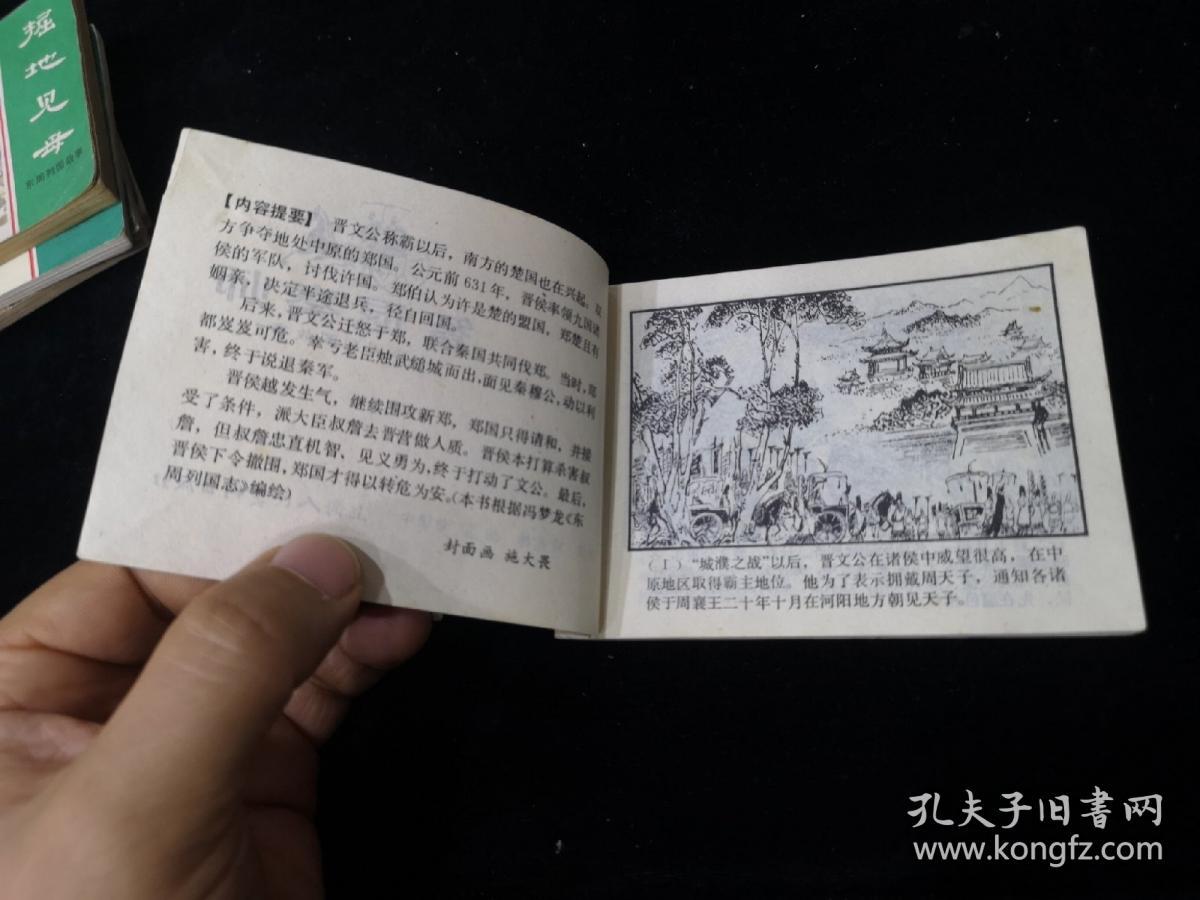 掘地见母
东周列国故事
【内容提要】 晋文公称霸以后，南方的楚国也在兴起，双
方争夺地处中原的郑国。公元前631年，晋侯率领九国诸
侯的军队，讨伐许国。郑伯认为许是楚的盟国，郑楚且有
姻亲，决定半途退兵，径自回国。
后来，晋文公迁怒于郑，联合秦国共同伐郑。当时，郑
都岌岌可危。幸亏老臣烛武缒城而出，面见秦穆公，动以利
害，终于说退秦军。
晋侯越发生气，继续围攻新郑，郑国只得请和，并接
受了条件，派大臣叔詹去晋营做人质。晋侯本打算杀害叔
詹，但叔詹忠直机智、见义勇为，终于打动了文公。最后，
晋侯下令撤围，郑国才得以转危为安。（本书根据冯梦龙《东
周列国志》编绘）
封面画 施大畏
（1）“城濮之战”以后，晋文公在诸侯中威望很高，在中
原地区取得霸主地位。他为了表示拥戴周天子，通知各诸
侯于周襄王二十年十月在河阳地方朝见天子。
孔夫子旧書网
www.kongfz.com